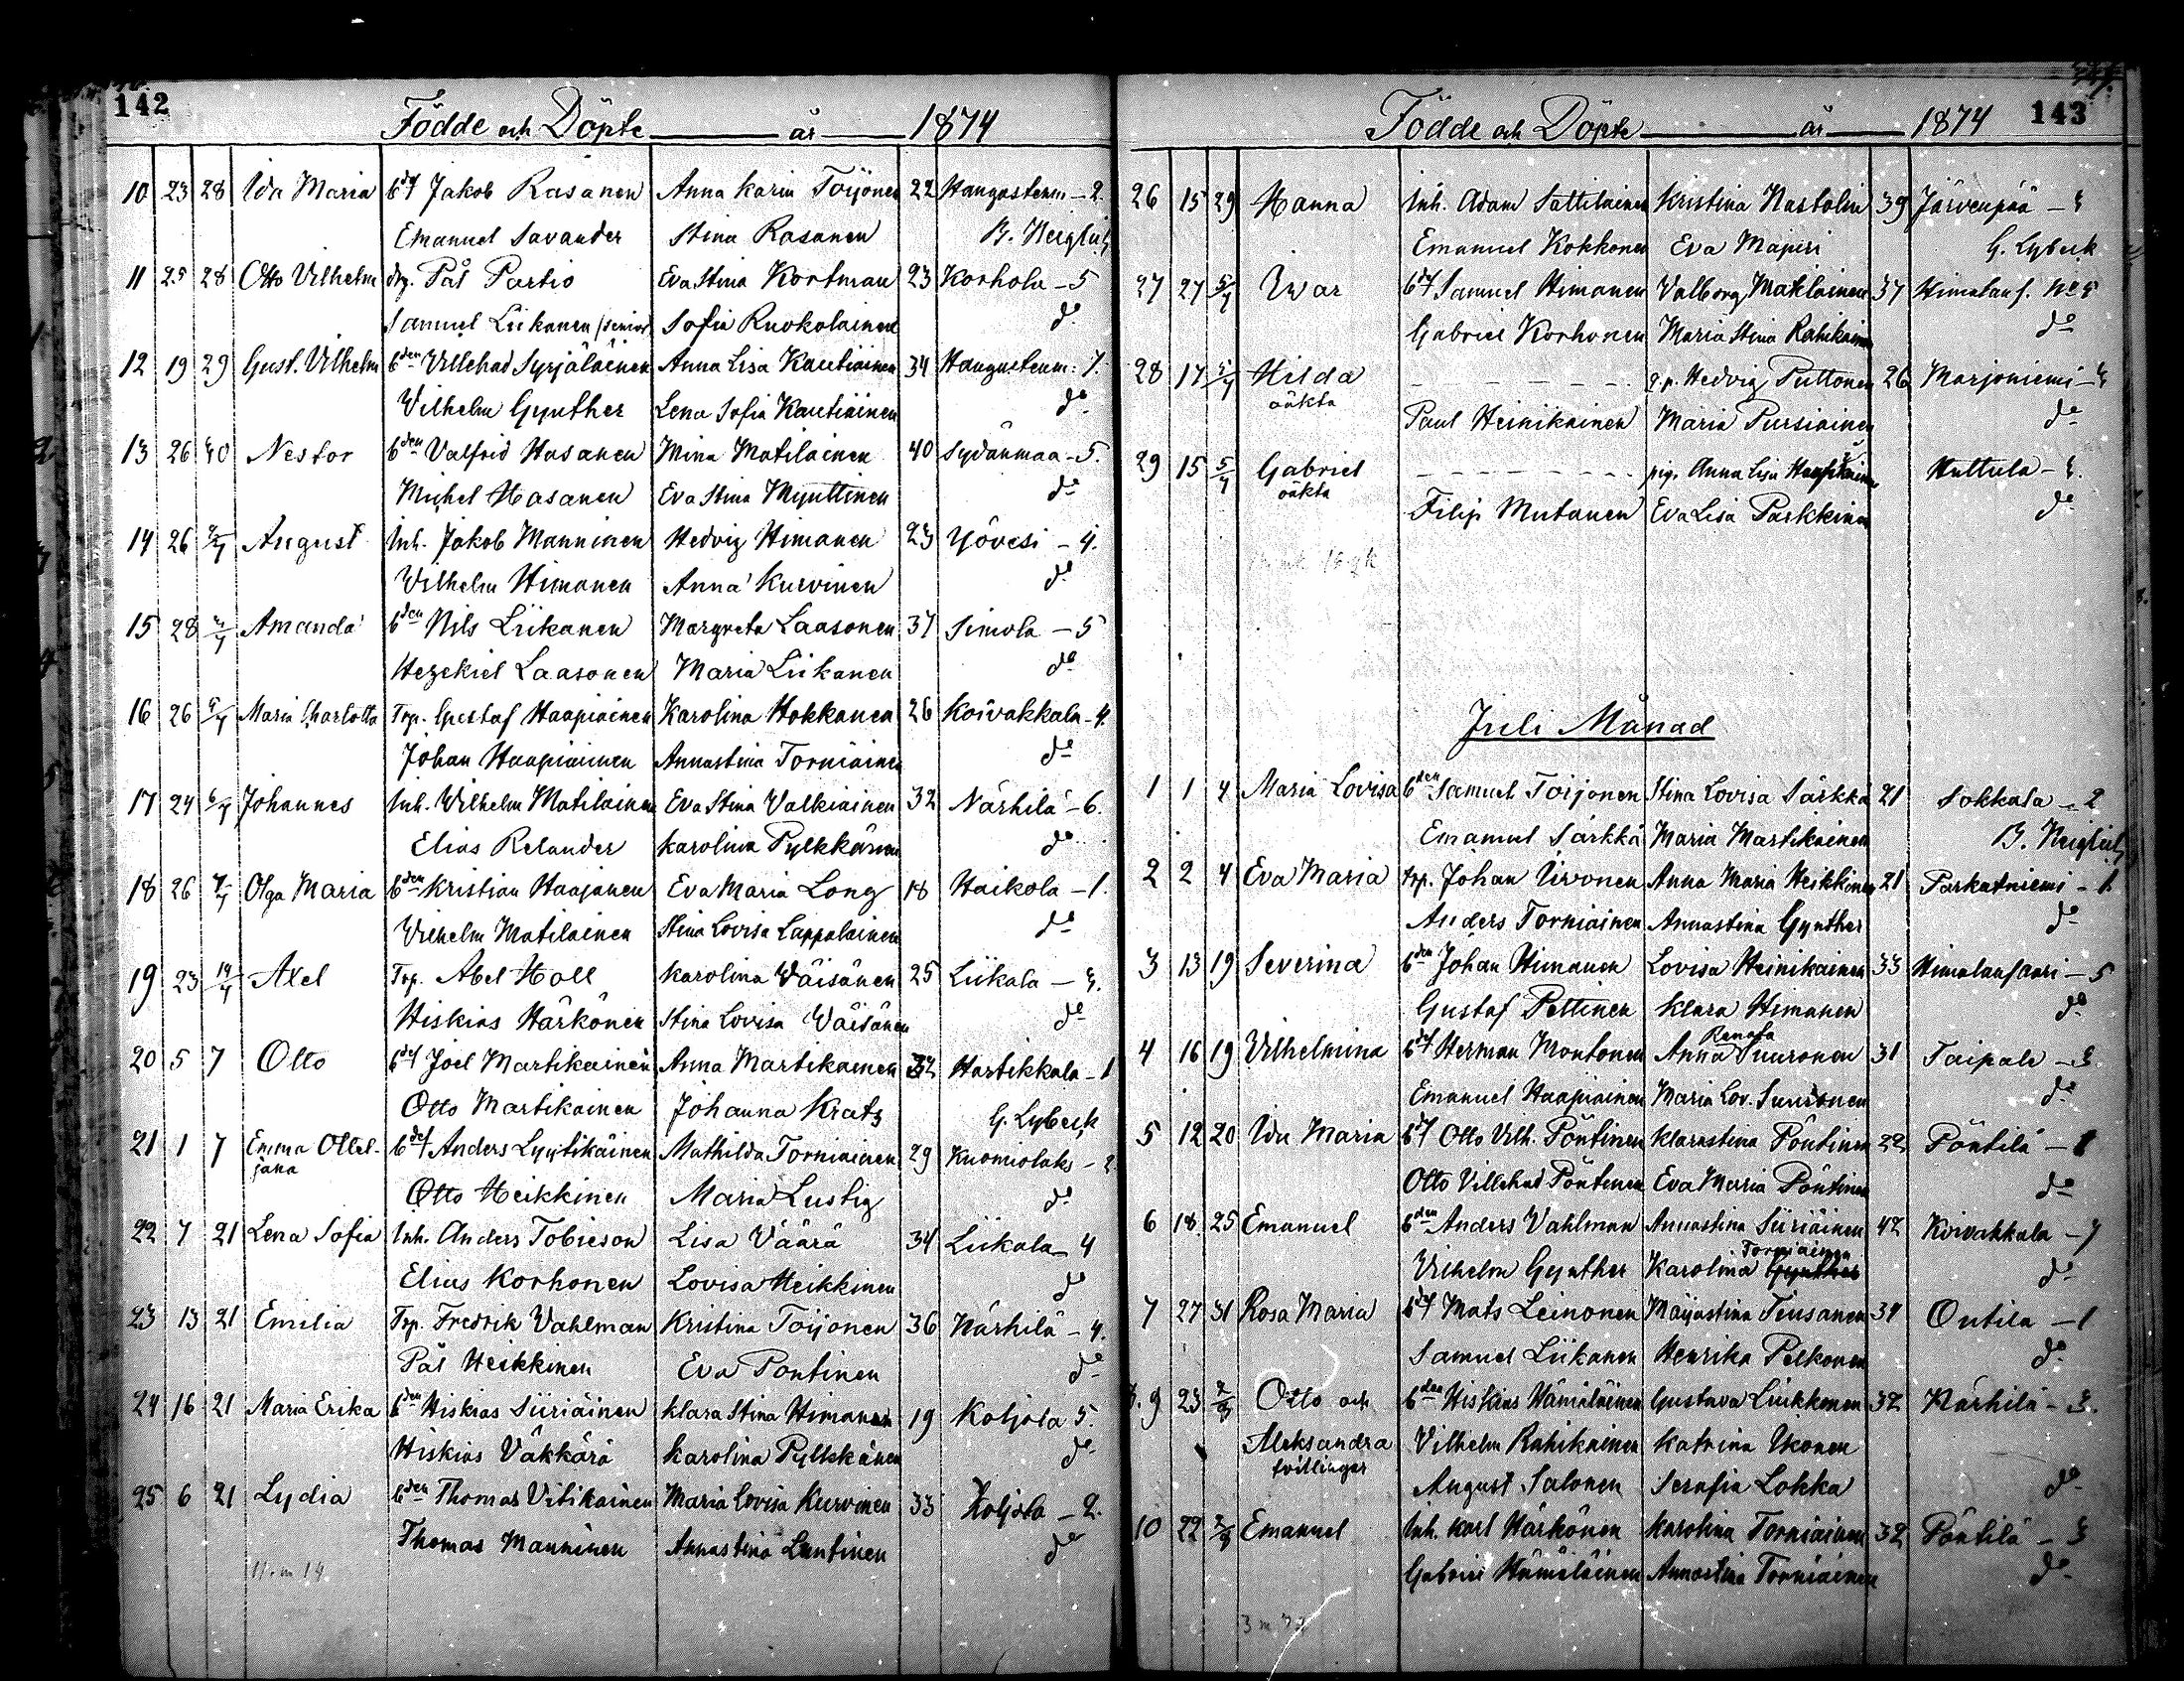 142
Födde och Döpte år 1874
10 23 28 Ida Maria bdf Jakob Räsänen Anna Karin Toijonen 22 Haugasteim - 2.
Emanuel Savander Stina Räsänen B. Neiglick
11 25 28 Otto Vilhelm drg. Pål Partio Eva Stina Kortman 23 Korhola - 5
Samuel Liikanen /senior Sofia Ruokolainen do
12 19 29 Gust. Vilhelm bden Villehad Syrjäläinen Anna Lisa Kautiainen 34 Haugasteim: 1.
Vilhelm Gynther Lena Sofia Kautiainen do
13 26 30 Nestor bden Valfrid Hasanen Mina Matilainen 40 Sydänmaa - 5.
Michel Hasanen Eva Stina Mynttinen do
14 26 August Inh. Jakob Manninen Hedvig Himanen 23 Yövesi - 4.
Vilhelm Himanen Anna Kurvinen do
15 28 4/7 Amanda bden Nils Liikanen Margreta Laasonen 37 Simola - 5
Hezekiel Laasonen Maria Liikanen do
16 26 5/7 Maria Charlotta Trp. Gustaf Haapiainen Karolina Hokkanen 26 Koivakkala - 4.
Johan Haapiainen Annastina Torniainen do
17 24 6/7 Johannes Inh. Vilhelm Matilainen Eva Stina Valkiainen 32 Närhilä - 6.
Elias Relander Karolina Pylkkänen do
18 26 7/7 Olga Maria bden Kristian Haajanen Eva Maria Long 18 Haikola - 1.
Vilhelm Matilainen Stina Lovisa Lappalainen do
19 23 19/7 Axel Trp. Abel Holl Karolina Väisänen 25 Liikala - 3.
Hiskias Härkönen Stina Lovisa Väisänen do
20 5 7 Otto bdf Joel Martikainen Anna Martikainen 32 Hartikkala - 1
Otto Martikainen Johanna Kratz G. Lybeck
21 1 7 Emma Ottel-
jana bdf Anders Lyytikäinen Mathilda Torniainen 29 Kuomiolaks - 2
Otto Heikkinen Maria Lustig do
22 7 21 Lena Sofia Inh. Anders Tobieson Lisa Väärä 34 Liikala - 4
Elias Korhonen Lovisa Heikkinen do
23 13 21 Emilia Trp. Fredrik Vahlman Kristina Toijonen 36 Närhilä - 4.
Pål Heikkinen Eva Pöntinen do
24 16 21 Maria Erika bden Hiskias Siiriäinen Klara Stina Himanen 19 Koljola 5.
Hiskias Väkkärä Karolina Pylkkänen do
25 6 21 Lydia bden Thomas Vitikainen Maria Lovisa Kurvinen 33 Koljola - 2.
Thomas Manninen Annastina Luntinen do
143
Födde och Döpte år 1874
26 15 29 Hanna Inh. Adam Sattilainen Kristina Nastolin 39 Järvenpää - 3
Emanuel Kokkonen Eva Majuri G. Lybeck
27 27 5/7 Ivar bdf Samuel Himanen Valborg Matilainen 37 Himalans. No 5
Gabriel Korhonen Maria Stina Rahikainen do
28 17 5/7 Hilda
oäkta q.p. Hedvig Puttonen 26 Marjoniemi - 3
Paul Heinikainen Maria Pursiainen do
29 15 5/7 Gabriel
oäkta pig. Anna Lisa Huttula - 3.
Filip Mutanen Eva Lisa Parkkinen do
Juli Månad
1 1 4 Maria Lovisa bden Samuel Toijonen Stina Lovisa Särkkä 21 Sokkala - 2
Emanuel Särkkä Maria Martikainen B. Neiglick
2 2 4 Eva Maria trp. Johan Urvonen Anna Maria Heikkinen 21 Parkatniemi - 1.
Anders Torniainen Annastina Gynther do
3 13 19 Severina bden Johan Himanen Lovisa Heinikainen 33 Himalansaari - 5
Gustaf Pettinen Klara Himanen do
4 16 19 Vilhelmina bdf Herman Montonen Anna Renata Suuronen 31 Taipale - 3.
Emanuel Haapiainen Maria Lov. Suuronen do
5 12 20 Ida Maria bdf Otto Vilh. Pöntinen Klarastina Pöntinen 22 Pöntilä - 1
Otto Villehad Pöntinen Eva Maria Pöntinen do
6 18 25 Emanuel bden Anders Vahlman Annastina Siiriäinen 42 Koivakkala - 7
Vilhelm Gynther Karolina Gynther Torniainen do
7 27 31 Rosa Maria bdf Mats Leinonen Maijastina Teusanen 34 Ontila - 1
Samuel Liikanen Henrika Pelkonen do
8. 9 23 2/8 Otto och bden Hiskias Hämäläinen Gustava Liukkonen 32 Närhilä - 3.
Aleksandra Vilhelm Rahikainen Katrina Ikonen
tvillingar
August Salonen Serafia Lokka do
10 22 2/8 Emanuel Inh. Karl Härkönen Karolina Torniainen 32 Pöntilä - 3
Gabriel Hämäläinen Annastina Torniainen do